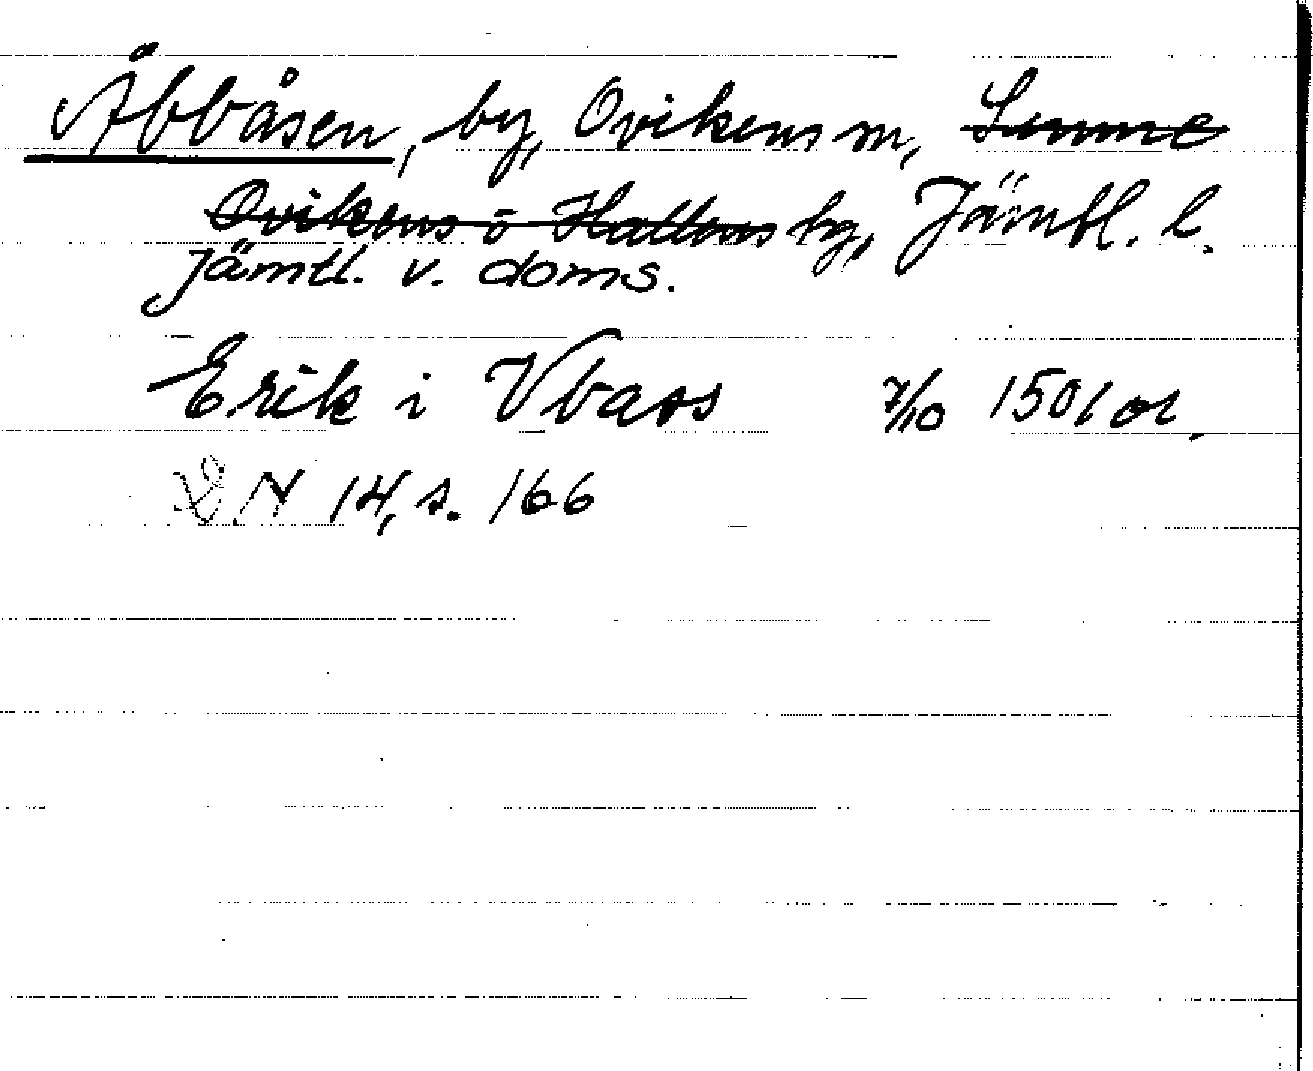 Åbbåsen, by, Ovikens sn, Sunne
Ovikens o Hallens hg, Jämtl. l.
Jämtl. v. doms.
Erik i Vbaas 7/10 1501 or.
N 14, s. 166